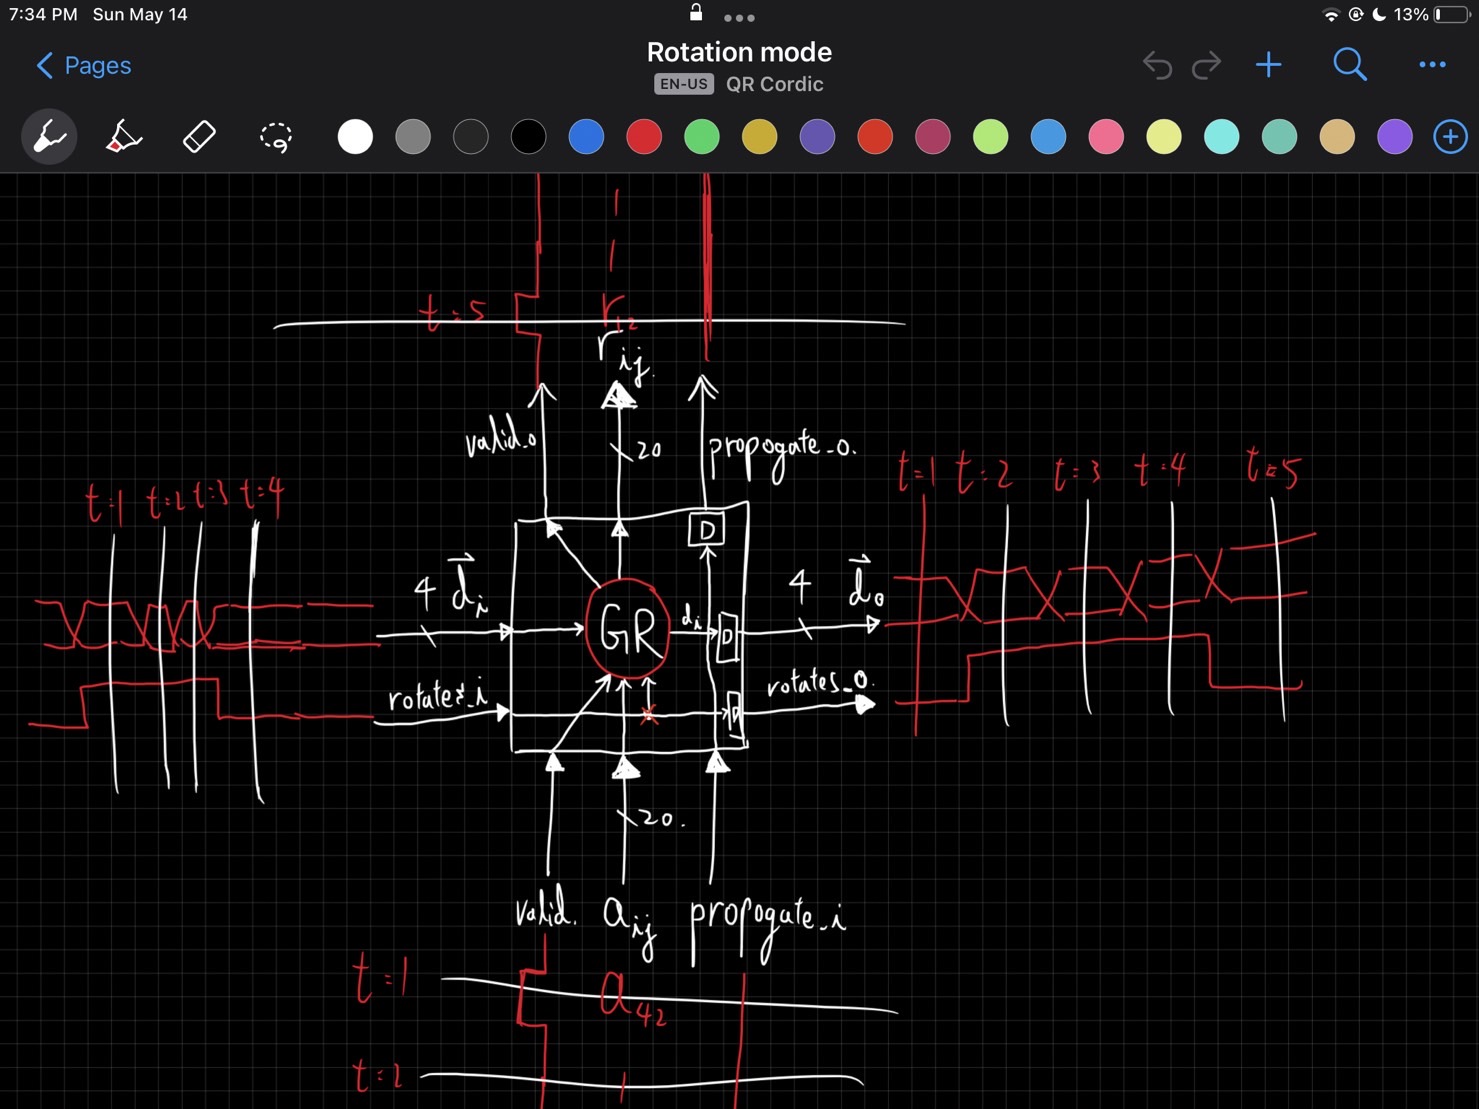 7:34 PM Sun May 14
13%
Pages
Rotation mode
EN-US QR Cordic
t=5
r12
rij.
valid_o
20
propogate_o.
t=1 t=2 t=3 t=4
t=1 t=2 t=3 t=4 t=5
D
4 di
GR
di
D
4 do
rotates_i
D
rotates_o.
20.
valid. aij propogate_i
t=1
a42
t=2